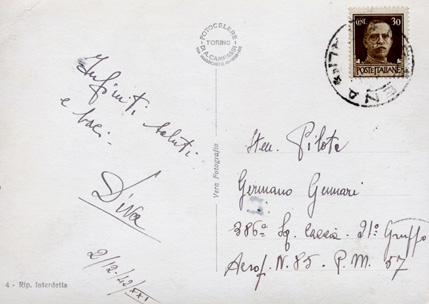 FOTOCELERE
TORINO
DI A. CAMPASSI
CENT 30
POSTE ITALIANE
ENA
Infiniti saluti
e baci.
Diva
2/12/42/XXI
Vera Fotografia
Sten. Pilota
Germano Gennari
386ª Sq. Caccia. 21º Gruppo
Aerop. N. 85 - P. M. 57
4 - Rip. Interdetta